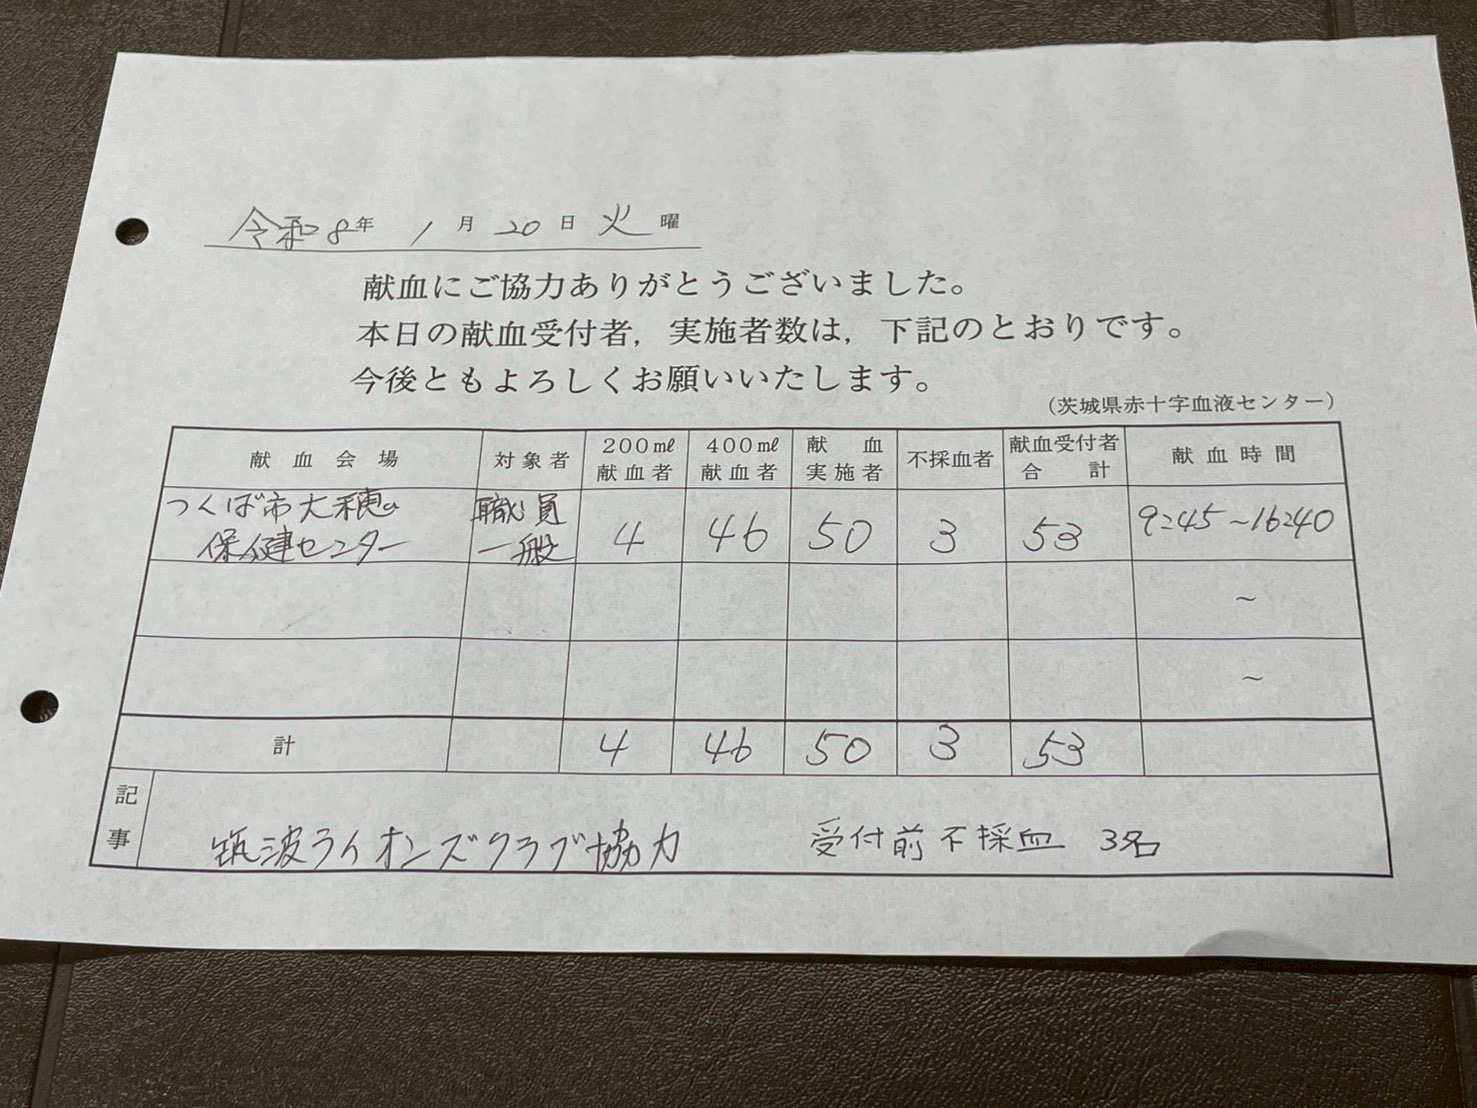 令和8年 1月 20日 火曜
献血にご協力ありがとうございました。
本日の献血受付者，実施者数は，下記のとおりです。
今後ともよろしくお願いいたします。
（茨城県赤十字血液センター）
献血会場 対象者 200㎖献血者 400㎖献血者 献血実施者 不採血者 献血受付者合計 献血時間
つくば市大穂保健センター 職員一般 4 46 50 3 53 9:45～16:40
～
～
計 4 46 50 3 53
記事 筑波ライオンズクラブ協力 受付前不採血 3名